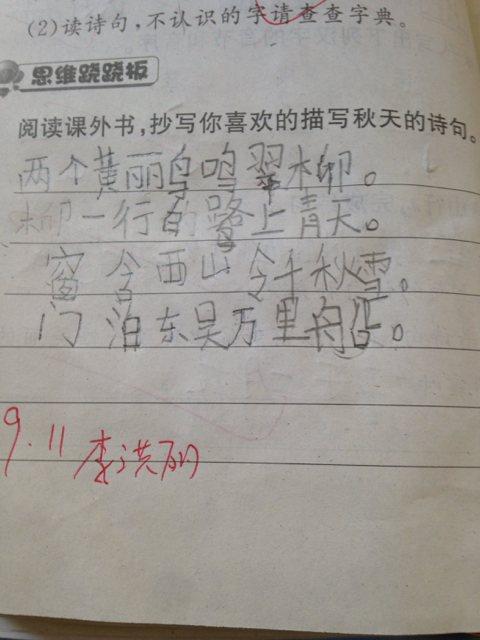 (2)读诗句,不认识的字请查查字典。
思维跷跷板
阅读课外书,抄写你喜欢的描写秋天的诗句。
两个黄丽鸟鸣翠柳。
柳一行白路上青天。
窗含西山令千秋雪。
门泊东吴万里舟船。
9.11 李洪丽